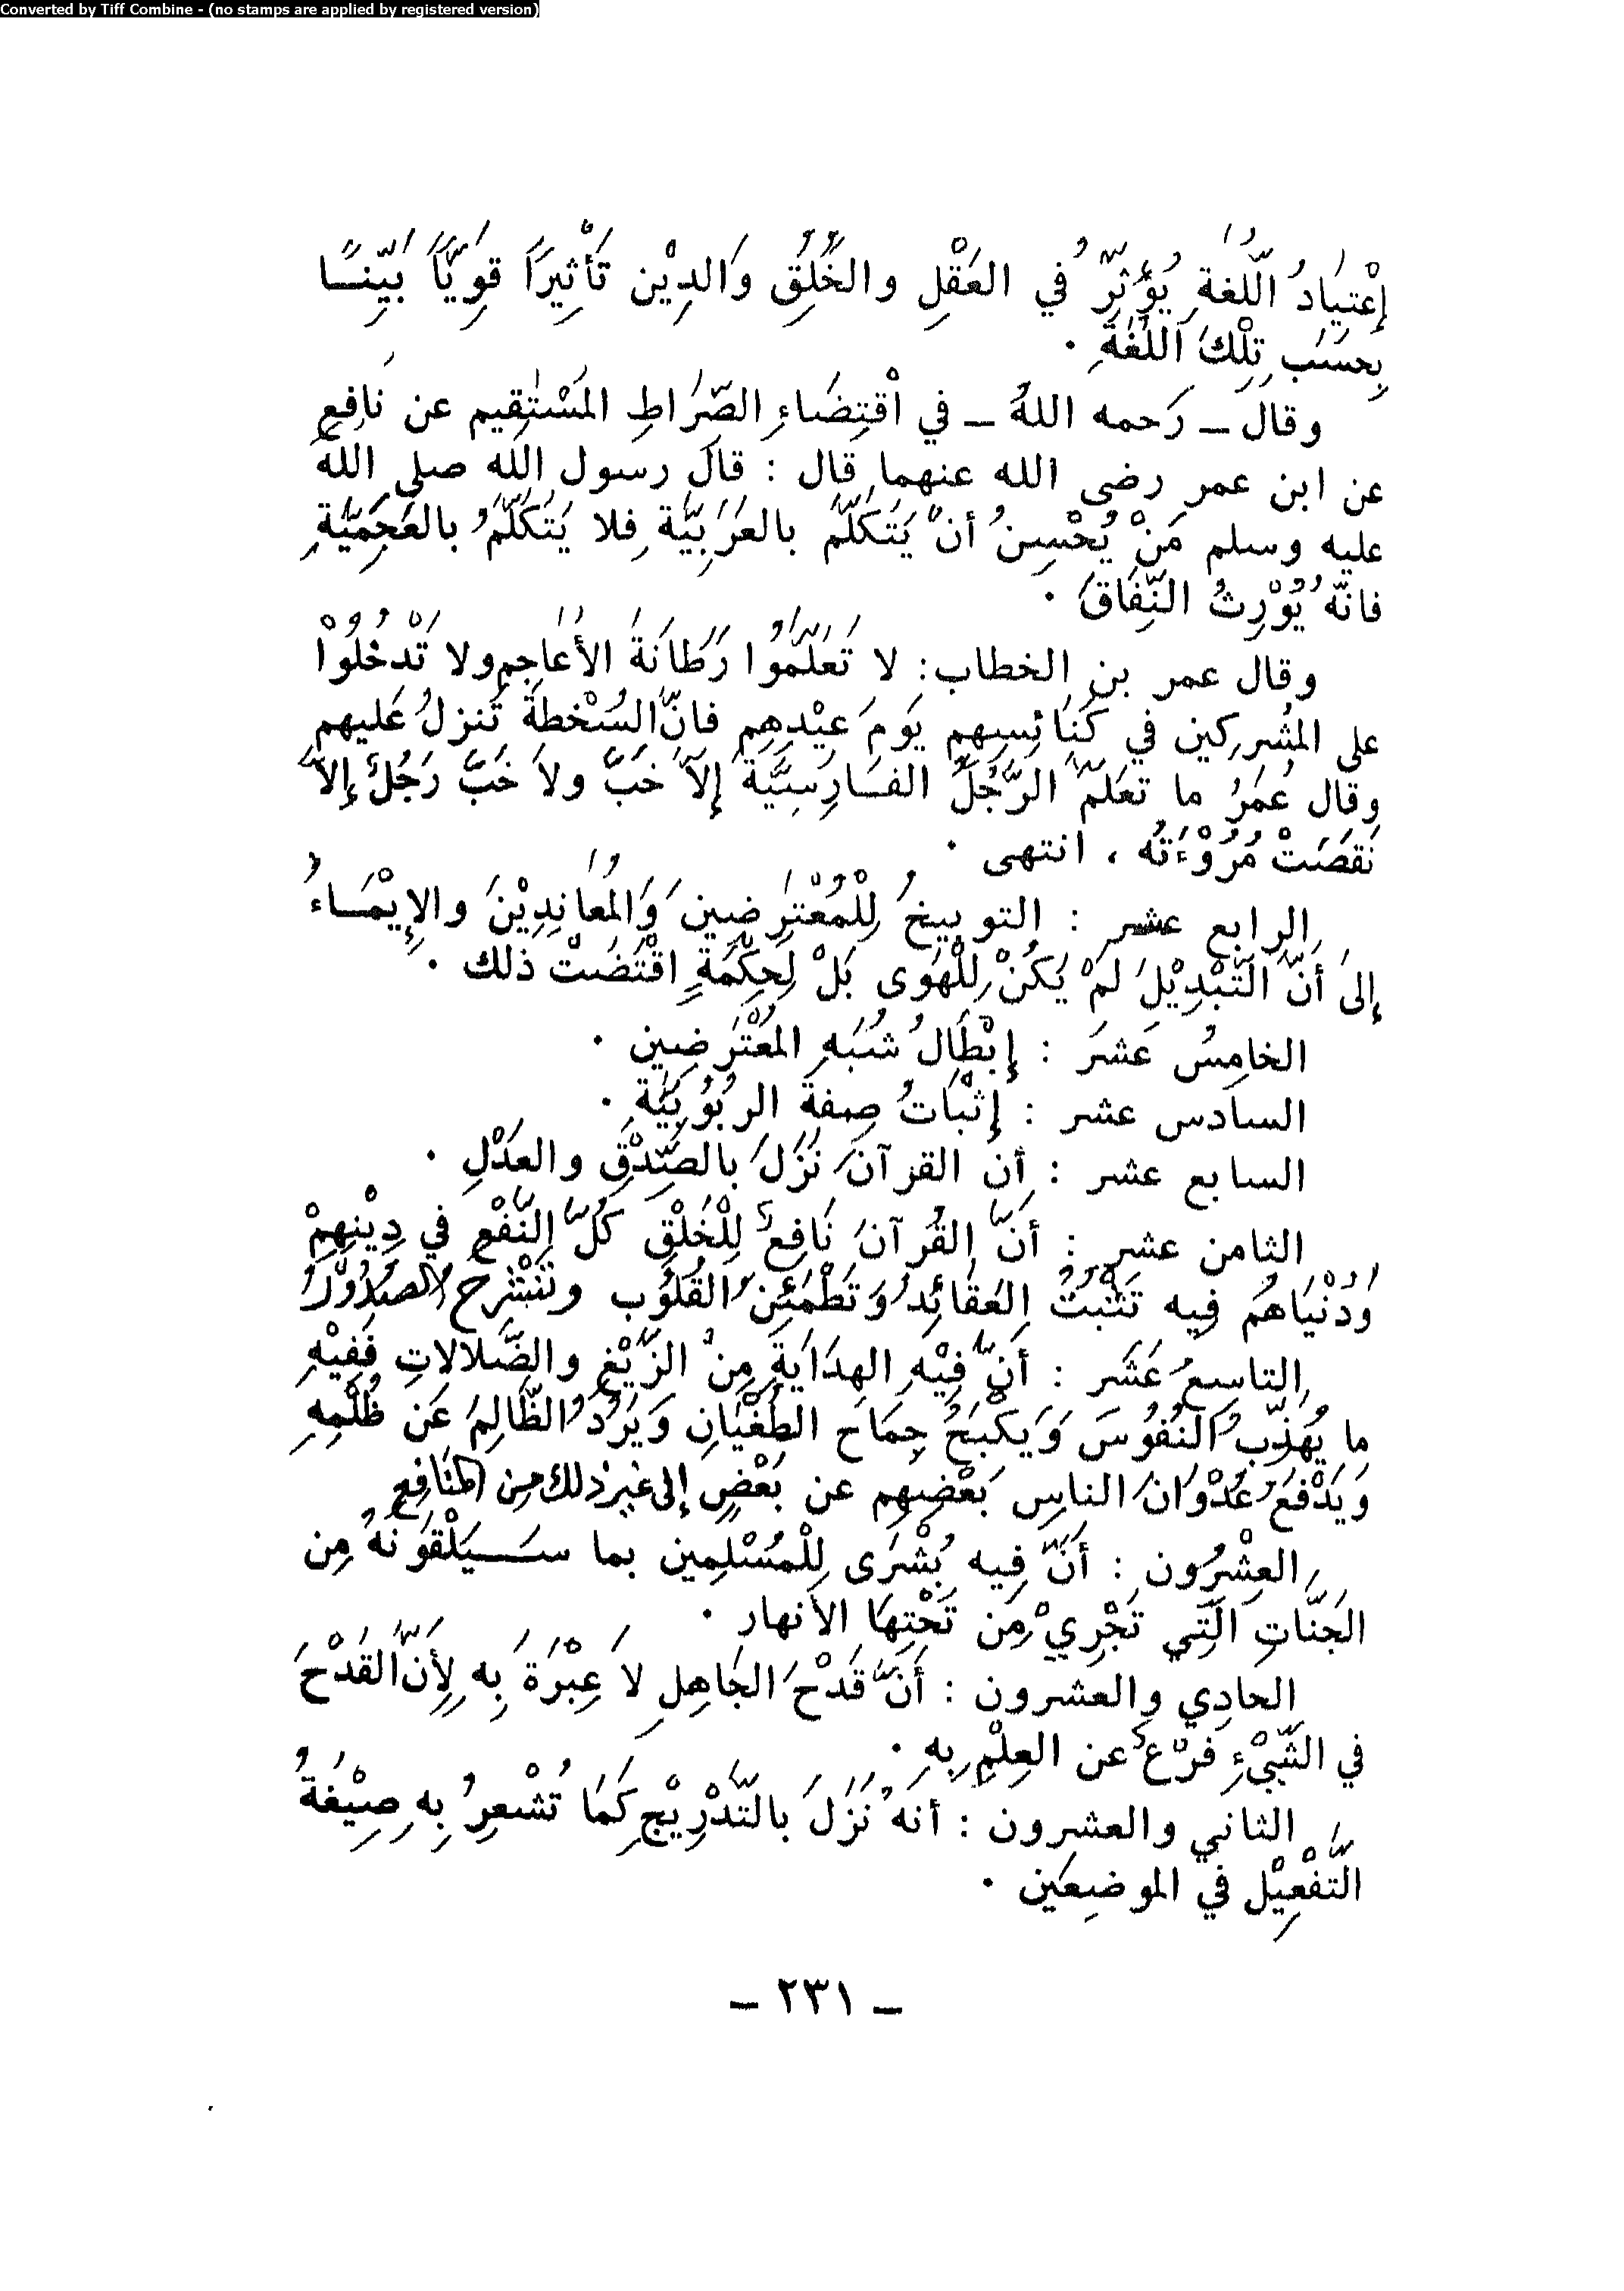 Converted by Tiff Combine - (no stamps are applied by registered version)
إِعْتِيَادُ اللُّغَةِ يُؤَثِّرُ في العَقْلِ والخُلُقِ وَالدِيْن تَأْثِيرَاً قوِيَّاً بَيِّنـــا
بِحسَبِ تِلْكَ اللُّغَةِ .
وقال ــ رَحمه اللهُ ــ في اقْتِضَاءِ الصِّرَاطِ المُسْتَقِيم عن نَافِع
عن ابن عمر رضى الله عنهما قال : قالَ رسول الله صلى اللهُ
عليه وسلم مَنْ يُحْسِنُ أنْ يَتَكَلَّمَ بالعَرَبِيَّة فلا يَتَكَلَّمُ بالعَجَمِيَّةِ
فانَّه يُوْرِثُ النِّفَاقَ .
وقال عمر بن الخطاب : لا تَعَلَّمُوا رَطَانَةَ الأَعَاجِمِ ولا تَدْخُلُوْا
على المشركين في كَنَائِسِهم يَومَ عيْدِهِم فانَّ السُّخْطةَ تَنزلُ عَليهم
وقال عُمَرُ ما تعَلَّمَ الرَّجُلُ الفـارِسِيَّةَ إلاَّ خَبَّ ولاَ خَبَّ رَجُلٌ إلاَّ
نَقَصَتْ مُرُوْءَتُه ، انتهى .
الرابع عشر : التوبيخُ لِلْمُعْتَرِضِينَ وَالمُعَانِدِيْنَ والإِيْمَـاءُ
إلى أَنَّ التَّبْدِيْلَ لَمْ يَكُنْ لِلْهَوَى بَلْ لِحِكْمَةٍ اقْتَضَتْ ذلك .
الخامِسُ عَشَرَ : إِبْطَالُ شُبَهِ المُعْتَرِضِين .
السادس عشر : إثْبَاتُ صِفةِ الربُوْبِيَّةِ .
السابع عشر : أن القرآنَ نَزَلَ بالصِّدْقِ والعَدْلِ .
الثامن عشر : أنَّ القُرآنَ نَافِعٌ لِلْخَلْقِ كُلَّ النَّفْعِ في دِيْنِهِمْ
وَدُنْيَاهُم فِيه تَثْبُتُ العَقَائِدُ وَتَطْمَئِنُ القُلُوْبُ وتَنْشَرِحُ الصُدُوْرُ
التاسِعُ عَشَر : أَنَّ فِيْهِ الهِدَايَةَ مِنْ الزَّيْغِ والضَّلالاتِ فَفِيْهِ
ما يُهَذِّبُ النُفُوسَ وَيَكْبَحُ جِمَاحَ الطُغْيَانِ وَيَرُدُّ الظَّالِمَ عَن ظُلْمِهِ
وَيَدْفَعُ عُدْوَانَ الناسِ بَعْضِهِم عن بَعْضٍ إلى غير ذلك مِن المنَافِعِ
العِشْرُون : أَنَّ فِيه بُشْرَى لِلْمُسْلِمِين بما ســـيَلْقَوْنَهُ مِن
الجَنَّاتِ الَّتِي تَجْرِيْ مِن تَحْتِهَا الأنهار .
الحادِي والعشرون : أَنَّ قَدْحَ الجَاهِلِ لاَ عِبْرَةَ بِه لِأَنَّ القَدْحَ
في الشَّيْءِ فَرْعٌ عن العِلْمِ بِهِ .
الثاني والعشرون : أنهُ نَزَلَ بالتَّدْرِيْجِ كَمَا تُشْعِرُ بِهِ صِيْغَةُ
التَّفْعِيْل في الموضِعَين .
ــ ٢٣١ ــ